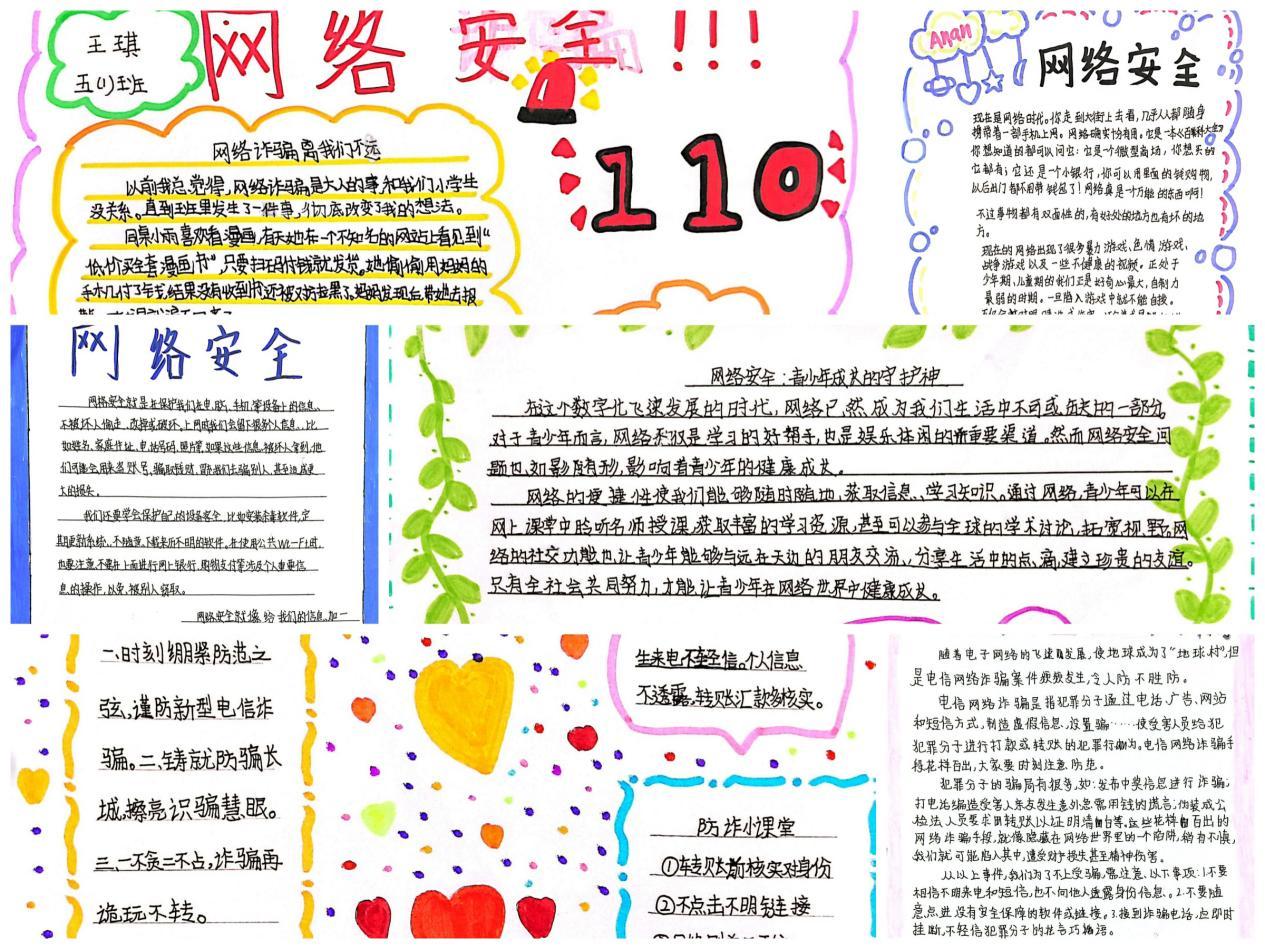 王琪
五(1)班
网络安全!!!
110
网络诈骗离我们不远
以前我总觉得,网络诈骗是大人的事和我们小学生
没关系。直到班里发生了一件事,彻底改变了我的想法。
同桌小雨喜欢看漫画,有天她在一个不知名的网站上看见到“
低价买全套漫画书”,只要扫码付钱就发货。她偷偷用妈妈的
手机付了钱,结果没有收到书还被对方拉黑了。妈妈发现后带她去报
Anan
网络安全
现在是网络时代。你走到大街上去看,几乎人人都随身
携带着一部手机上网。网络确实怕有用。它是一本《百科大全》
你想知道的都可以问它;它是个微型商场,你想买的
它都有;它还是一个小银行,你可以用里面的钱购物,
以后出门都不用带钱包了!网络真是个万能的东西啊!
不过事物都有双面性的,有好处的地方也有坏的地
方。
现在的网络出现了很多暴力游戏、色情游戏、
战争游戏以及一些不健康的视频。正处于
少年期、儿童期的我们正是好奇心最大,自制力
最弱的时期。一旦陷入游戏中就不能自拔。
网络安全
网络安全就是在保护我们在电脑、手机等设备上的信息、
不被坏人偷走、改掉或破坏。上网时我们会留下很多个人信息、比
如姓名、家庭住址、电话号码、照片等。如果这些信息被坏人拿到,他
们可能会用来盗账号,骗取钱财,跟我们去骗别人,甚至造成更
大的损失。
我们还要学会保护自己的设备安全,比如安装杀毒软件,定
期更新系统、不随意下载来历不明的软件。在使用公共Wi-Fi时,
也要注意,不要在上面进行网上银行、购物支付等涉及个人重要信
息的操作,以免被别人窃取。
网络安全就像给我们的信息加一
网络安全:青少年成长的守护神
在这个数字化飞速发展的时代,网络已然成为我们生活中不可或缺的一部分。
对于青少年而言,网络不仅是学习的好帮手,也是娱乐休闲的重要渠道。然而网络安全问
题也如影随形,影响着青少年的健康成长。
网络的便捷性使我们能够随时随地获取信息、学习知识。通过网络,青少年可以在
网上课堂中聆听名师授课,获取丰富的学习资源,甚至可以参与全球的学术讨论,拓宽视野。网
络的社交功能也让青少年能够与远在天边的朋友交流,分享生活中的点滴,建立珍贵的友谊。
只有全社会共同努力,才能让青少年在网络世界中健康成长。
一、时刻绷紧防范之
弦、谨防新型电信诈
骗。二、铸就防骗长
城,擦亮识骗慧眼。
三、一不贪二不占,诈骗再
诡玩不转。
生来电不轻信。个人信息
不透露,转账汇款多核实。
防诈小课堂
①转账前核实对身份
②不点击不明链接
随着电子网络的飞速发展,使地球成为了“地球村”,但
是电信网络诈骗案件频频发生,令人防不胜防。
电信网络诈骗是指犯罪分子通过电话、广告、网站
和短信方式,制造虚假信息,设置骗……使受害人员给犯
犯罪分子进行打款或转账的犯罪行为。电信网络诈骗手
段花样百出,大家要时刻注意防范。
犯罪分子的骗局有很多,如:发布中奖信息进行诈骗;
打电话编造受害人亲友发生意外急需用钱的谎言;伪装成公
检法人员要求转账以证明清白等。这些花样百出的
网络诈骗手段,就像隐藏在网络世界里的一个陷阱,稍有不慎,
我们就可能陷入其中,遭受财产损失甚至精神伤害。
从以上事件,我们为了不上受骗,需注意以下事项:1.不要
相信不明来电和短信,也不向他人透露身份信息。2.不要随
意点进没有安全保障的软件或链接。3.接到诈骗电话,应即时
挂断,不轻信犯罪分子的花言巧语。